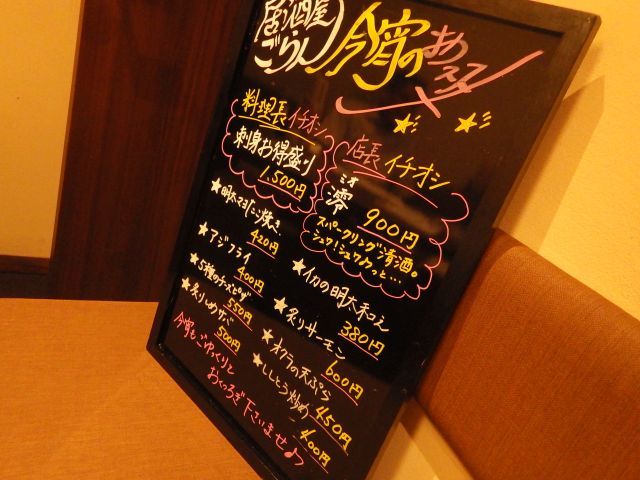 居酒屋
ごらん
今宵のおススメ
料理長イチオシ
刺身お得盛り
1,500円
店長イチオシ
ミオ
澪 900円
スパークリング清酒。
シュワ!シュワわっと…
★明太マヨたこ焼き
420円
★アジフライ
400円
★5種のチーズピザ
550円
★炙りしめサバ
500円
★イカの明太和え
380円
★炙りサーモン
600円
★オクラの天ぷら
450円
★ししとう炒め
400円
今宵もごゆっくりと
おくつろぎ下さいませ♪